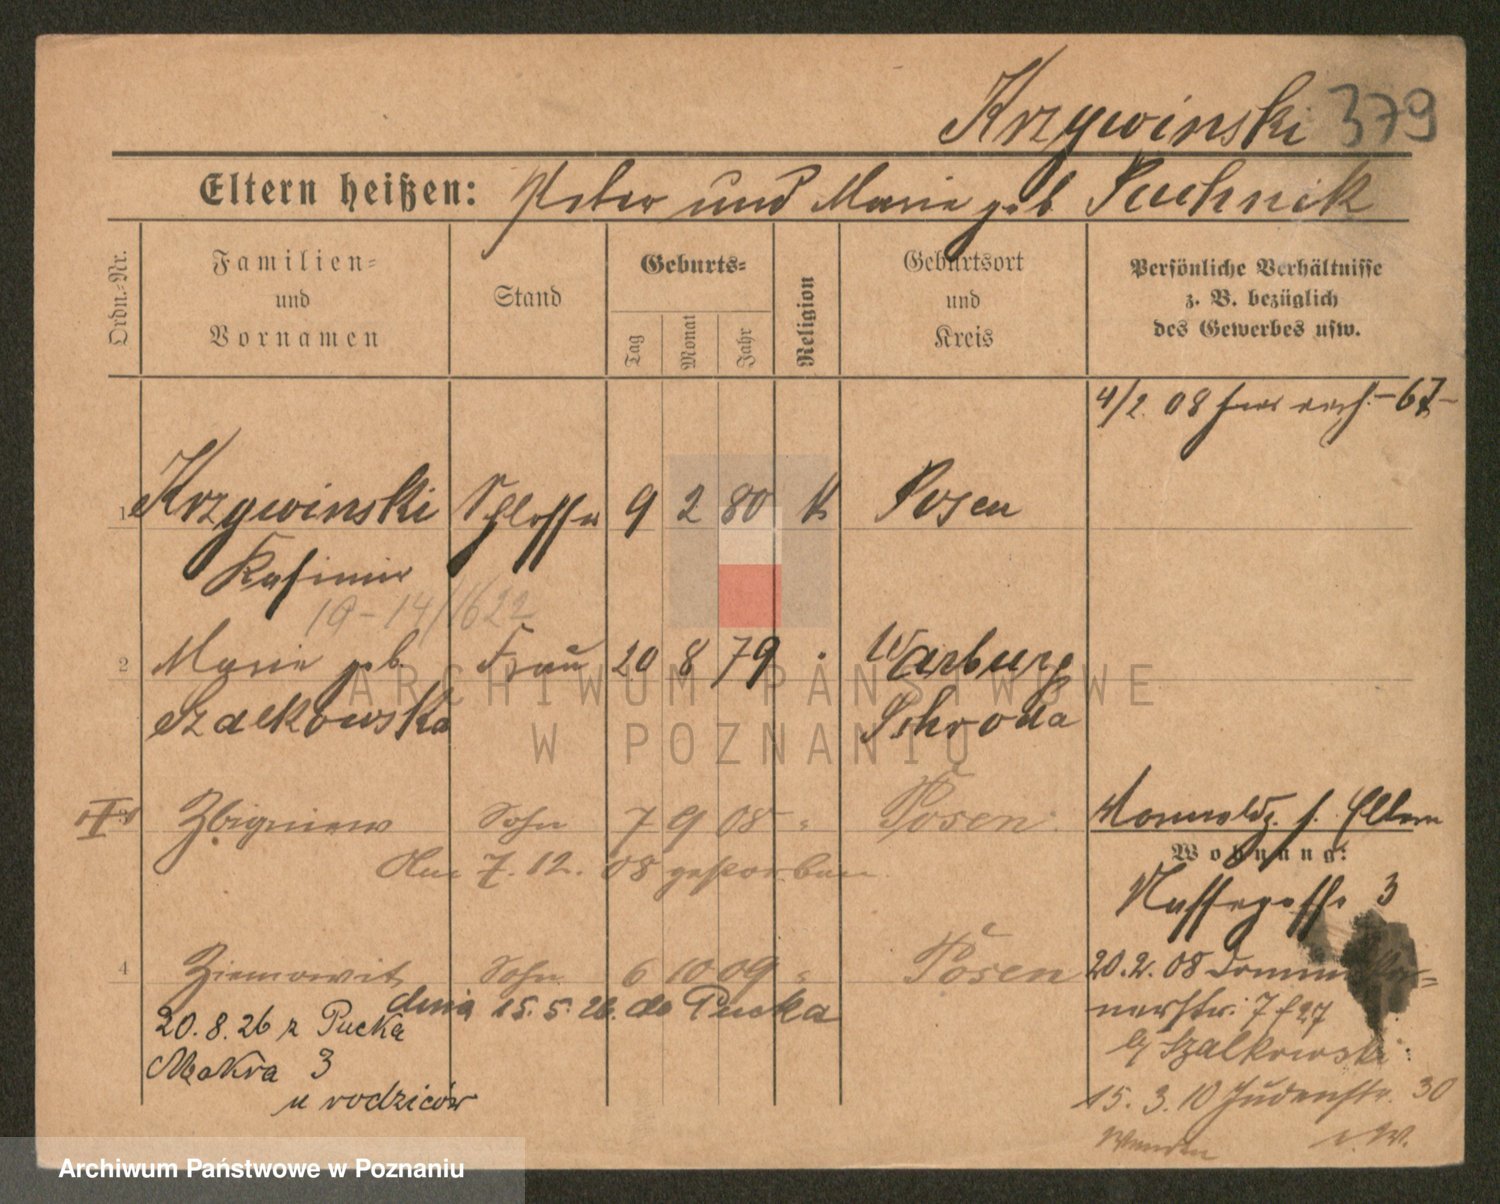 Krzywinski 379
Eltern heißen: Peter und Marie geb Puchnik
Ordn.-Nr.
Familien-
und
Vornamen
Stand
Geburts-
Tag
Monat
Jahr
Religion
Geburtsort
und
Kreis
Persönliche Verhältnisse
z. B. bezüglich
des Gewerbes usw.
4/2 08
1 Krzywinski Schlosser 9 2 80 K Posen
Kasimir
19-14/1622
2 Marie geb. Frau 20 8 79 " Warburg
Szalkowska Schroda
Zbigniew Sohn 7 9 08 " Posen
Am 7. 12. 08 gestorben
4 Ziemowit Sohn 6 10 09 " Posen
dnia 15. 5. 26. do Pucka
20. 8. 26 z Pucka
Mokra 3
u rodziców
f. Eltern
Wohnung:
Nassegasse 3
20. 2. 08
Szalkowski
15. 3. 10 Judenstr. 30
ARCHIWUM PAŃSTWOWE
W POZNANIU
Archiwum Państwowe w Poznaniu